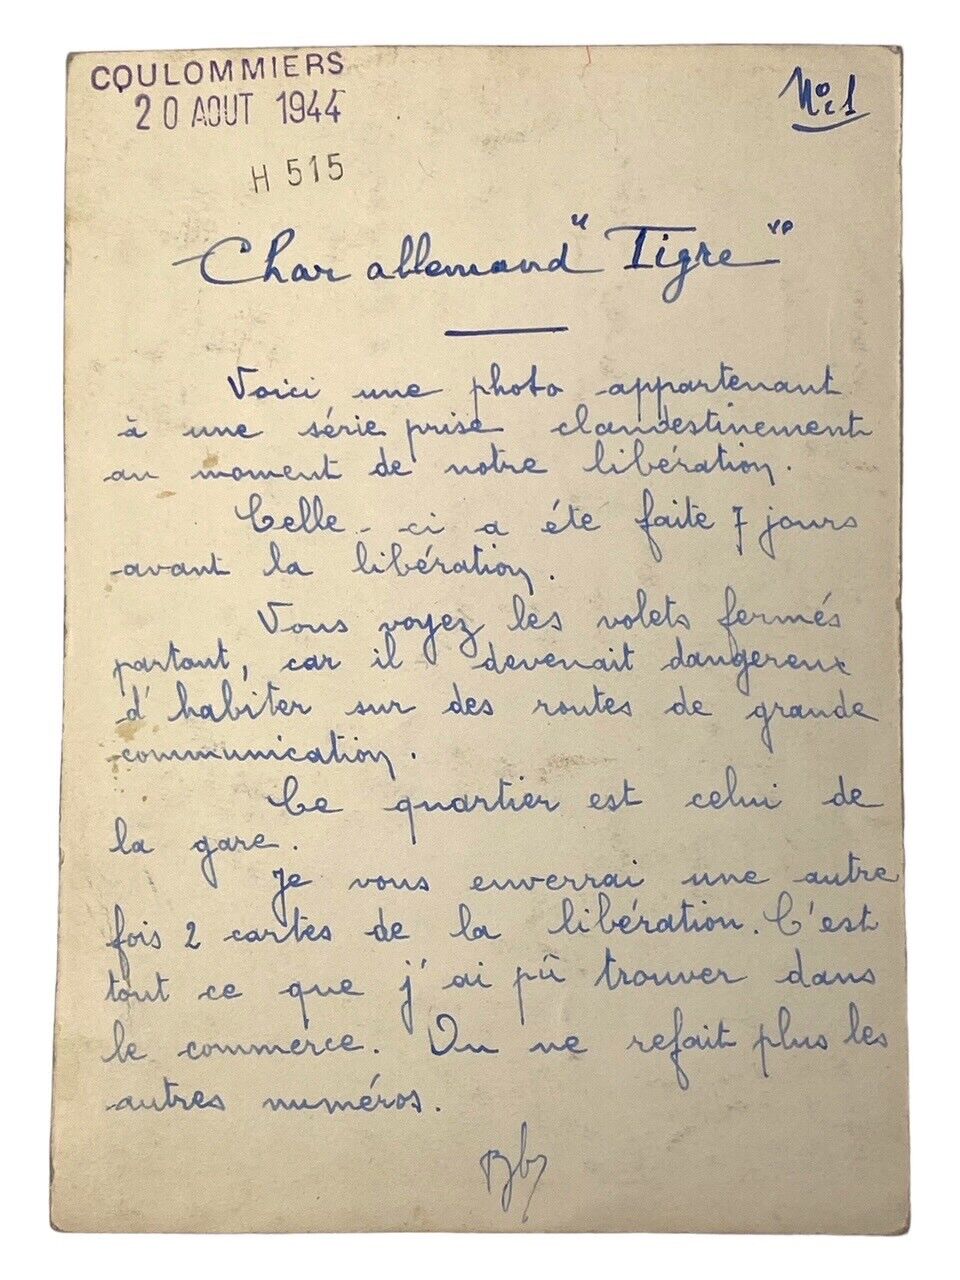 COULOMMIERS
20 AOUT 1944
H 515
No 1
Char allemand "Tigre"
Voici une photo appartenant
à une série prise clandestinement
au moment de notre libération.
Celle-ci a été faite 7 jours
avant la libération.
Vous voyez les volets fermés
partout, car il devenait dangereux
d'habiter sur des routes de grande
communication.
Ce quartier est celui de
la gare.
Je vous enverrai une autre
fois 2 cartes de la libération. C'est
tout ce que j'ai pû trouver dans
le commerce. On ne refait plus les
autres numéros.